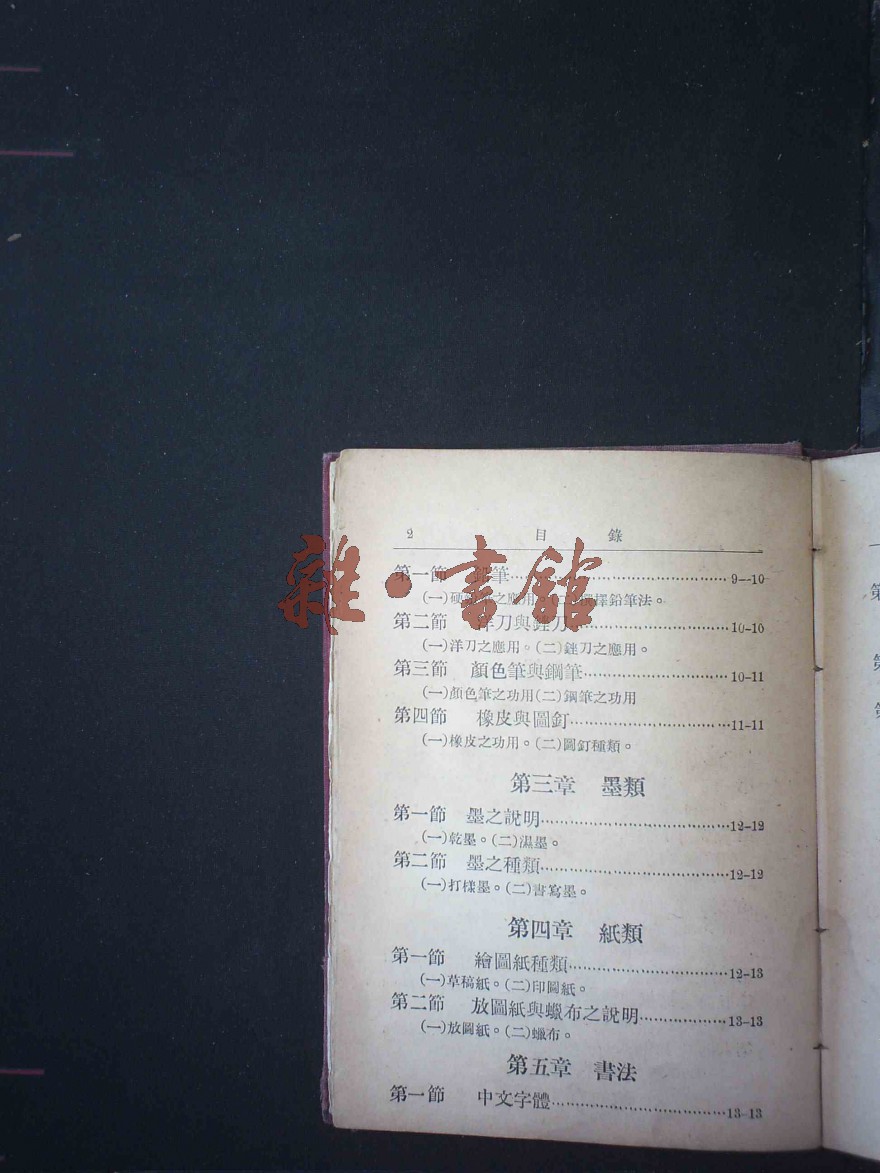 2 目錄
第一節 鉛筆……9—10
(一)硬 之應用 擇鉛筆法。
第二節 洋刀與銼刀……10-10
(一)洋刀之應用。(二)銼刀之應用。
第三節 顏色筆與鋼筆……10-11
(一)顏色筆之功用(二)鋼筆之功用
第四節 橡皮與圖釘……11-11
(一)橡皮之功用。(二)圖釘種類。
第三章 墨類
第一節 墨之說明……12-12
(一)乾墨。(二)濕墨。
第二節 墨之種類……12-12
(一)打樣墨。(二)書寫墨。
第四章 紙類
第一節 繪圖紙種類……12-13
(一)草稿紙。(二)印圖紙。
第二節 放圖紙與蠟布之說明……13-13
(一)放圖紙。(二)蠟布。
第五章 書法
第一節 中文字體……13-13
雜·書館
第
第
第